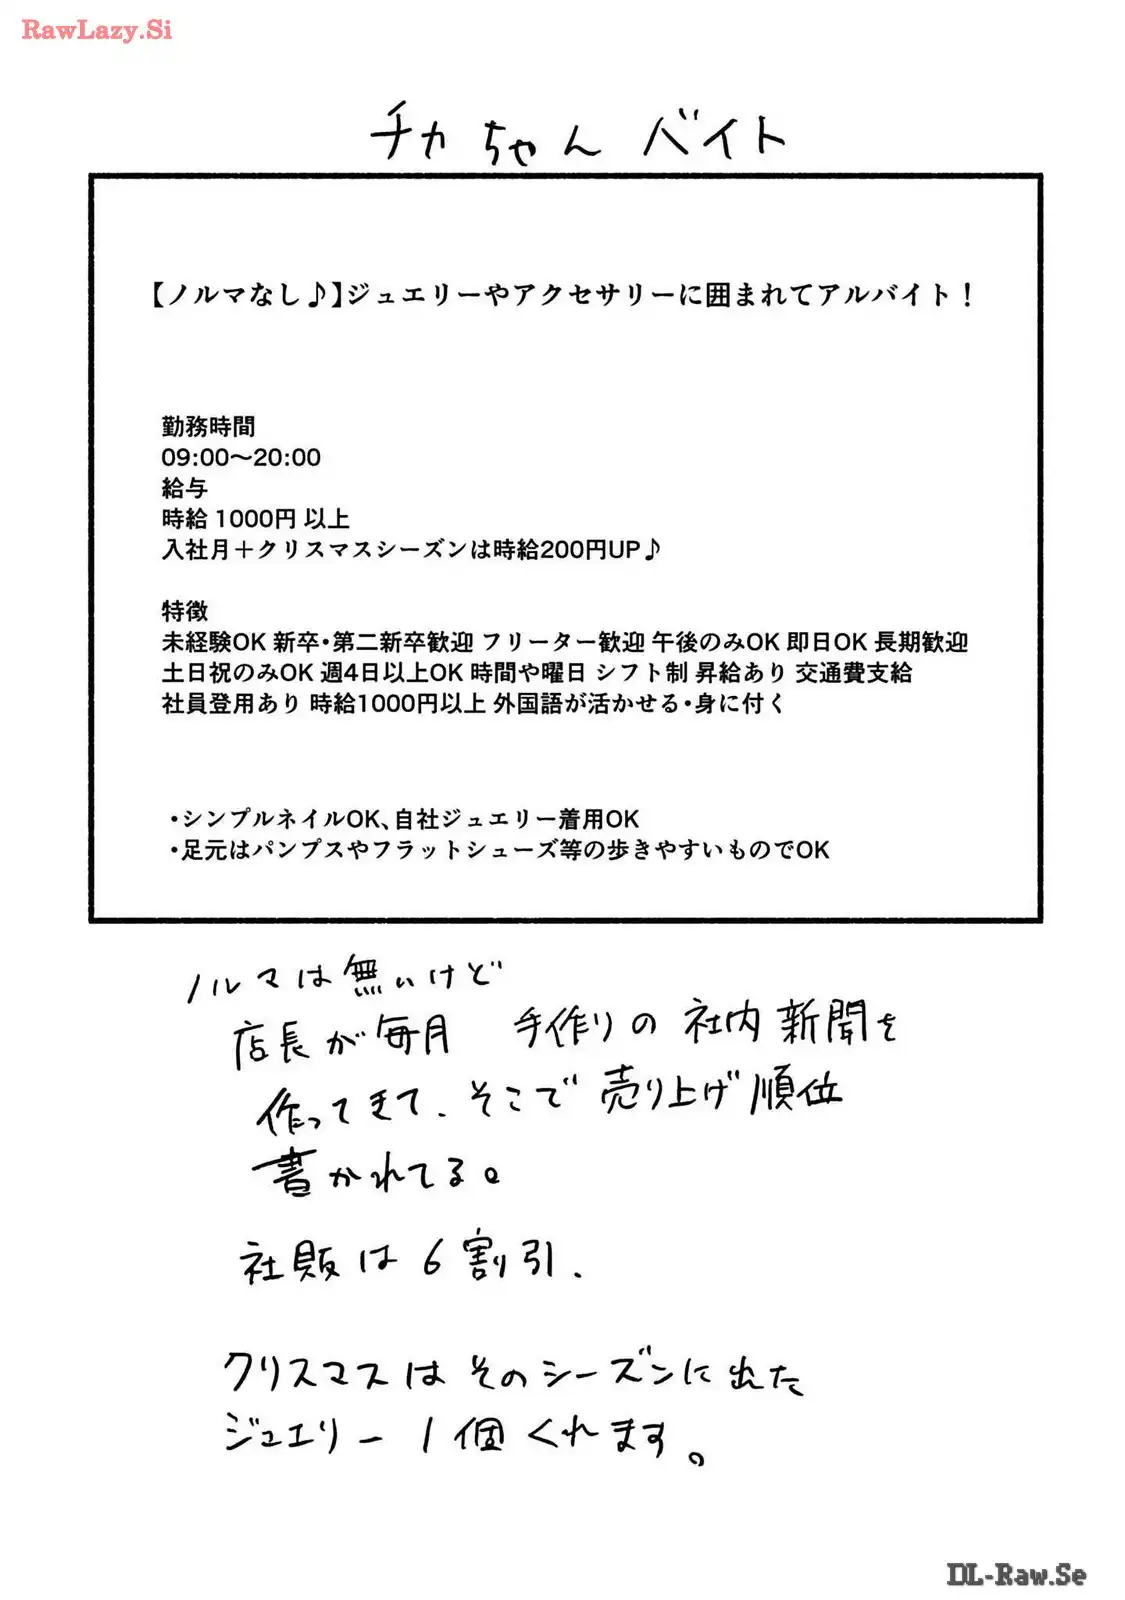 RawLazy.Si
チカちゃん バイト
【ノルマなし♪】ジュエリーやアクセサリーに囲まれてアルバイト！
勤務時間
09:00～20:00
給与
時給 1000円 以上
入社月＋クリスマスシーズンは時給200円UP♪
特徴
未経験OK 新卒・第二新卒歓迎 フリーター歓迎 午後のみOK 即日OK 長期歓迎
土日祝のみOK 週4日以上OK 時間や曜日 シフト制 昇給あり 交通費支給
社員登用あり 時給1000円以上 外国語が活かせる・身に付く
・シンプルネイルOK、自社ジュエリー着用OK
・足元はパンプスやフラットシューズ等の歩きやすいものでOK
ノルマは無いけど
店長が毎月 手作りの社内新聞を
作ってきて、そこで売り上げ順位
書かれてる。
社販は6割引.
クリスマスはそのシーズンに出た
ジュエリー1個くれます。
DL-Raw.Se